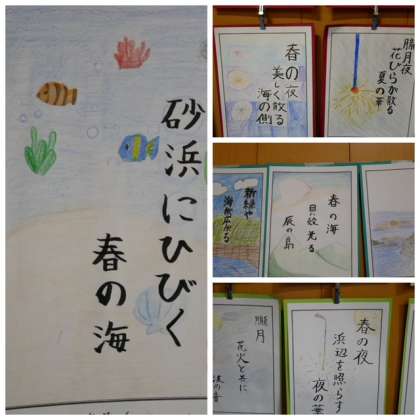 砂浜にひびく
春の海
春の夜
美しく散る
海の側
朧月夜
花びらが散る
夏の華
新緑や
春の海
貝殻光る
辰の島
朧月
花火と共に
の音
春の夜
浜辺を照らす
夜の華